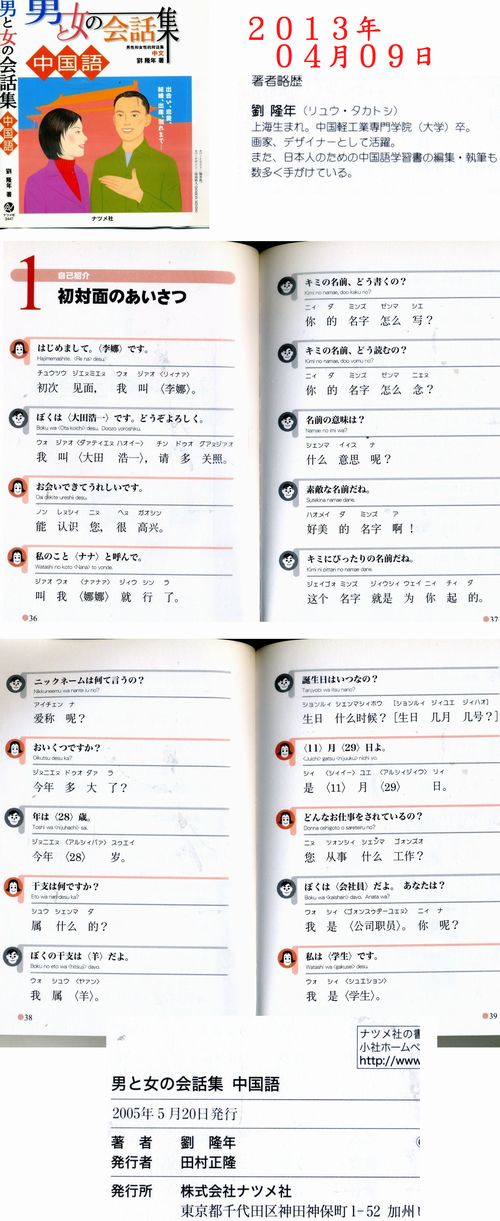 男と女の会話集
中国語
劉 隆年 著
ナツメ社
男と女の会話集
男性和女性的対話集
中文
中国語
劉 隆年 著
出会い、恋愛、
結婚、出産、別れまで…
ナツメ社
2013年
04月09日
著者略歴
劉 隆年（リュウ・タカトシ）
上海生まれ。中国軽工業専門学院（大学）卒。
画家、デザイナーとして活躍。
また、日本人のための中国語学習書の編集・執筆も
数多く手がけている。
1
自己紹介
初対面のあいさつ
はじめまして。〈李娜〉です。
Hajimemashite. 〈Re na〉 desu.
チュウツウ ジエヌミエヌ ウォ ジァオ〈リィナァ〉
初次 见面， 我 叫〈李娜〉。
ぼくは〈大田浩一〉です。どうぞよろしく。
Boku wa 〈Ota koichi〉 desu. Doozo yoroshiku.
ウォ ジァオ〈ダァティエヌ ハオイー〉 チン ドゥオ グアヌジァオ
我 叫〈大田 浩一〉，请 多 关照。
お会いできてうれしいです。
Oai dekite ureshii desu.
ノン レヌシィ ニヌ ヘヌ ガオシン
能 认识 您， 很 高兴。
私のこと〈ナナ〉と呼んで。
Watashi no koto 〈Nana〉 to yonde.
ジァオ ウォ 〈ナァナァ〉 ジィウ シン ラ
叫 我 〈娜娜〉 就 行 了。
36
キミの名前、どう書くの？
Kimi no namae, doo kaku no?
ニィ ダ ミンズ ゼンマ シエ
你 的 名字 怎么 写？
キミの名前、どう読むの？
Kimi no namae, doo yomu no?
ニィ ダ ミンズ ゼンマ ニエヌ
你 的 名字 怎么 念？
名前の意味は？
Namae no imi wa?
シェンマ イィス ナ
什么 意思 呢？
素敵な名前だね。
Sutekina namae dane.
ハオメイ ダ ミンズ ア
好美 的 名字 啊！
キミにぴったりの名前だね。
Kimi ni pittari no namae dane.
ジェイゴォ ミンズ ジィウシィ ウェイ ニィ チィ ダ
这个 名字 就是 为 你 起 的。
37
ニックネームは何て言うの？
Nikkuneemu wa nante iu no?
アイチェン ナ
爱称 呢？
おいくつですか？
Oikutsu desu ka?
ジヌニエヌ ドゥオ ダァ ラ
今年 多 大 了？
年は〈28〉歳。
Toshi wa 〈nijuhachi〉 sai.
ジヌニエヌ〈アルシィバァ〉スゥエイ
今年 〈28〉 岁。
干支は何ですか？
Eto wa nan desu ka?
シュウ シェンマ ダ
属 什么 的？
ぼくの干支は〈羊〉だよ。
Boku no eto wa 〈hitsuji〉 dayo.
ウォ シュウ〈ヤァン〉
我 属〈羊〉。
38
誕生日はいつなの？
Tanjyobi wa itsu nano?
ションルィ シェンマシィホウ ［ションルィ ジィユエ ジィハオ］
生日 什么时候？［生日 几月 几号？］
〈11〉月〈29〉日よ。
〈Juichi〉 gatsu 〈nijuuku〉 nichi yo.
シィ 〈シィイー〉 ユエ 〈アルシィジィウ〉 リィ
是 〈11〉 月 〈29〉 日。
どんなお仕事をされているの？
Donna oshigoto o sareteru no?
ニヌ ツォンシィ シェンマ ゴォンズオ
您 从事 什么 工作？
ぼくは〈会社員〉だよ。あなたは？
Boku wa 〈kaishain〉 dayo. Anata wa?
ウォ シィ〈ゴォンスゥヂーユエヌ〉 ニィ ナ
我 是〈公司职员〉。你 呢？
私は〈学生〉です。
Watashi wa 〈gakusei〉 desu.
ウォ シィ〈シュエション〉
我 是〈学生〉。
39
ナツメ社の書
小社ホームペ
http://www
男と女の会話集 中国語
2005年5月20日発行
著 者 劉 隆年
発行者 田村正隆
発行所 株式会社ナツメ社
東京都千代田区神田神保町1-52 加州ビ